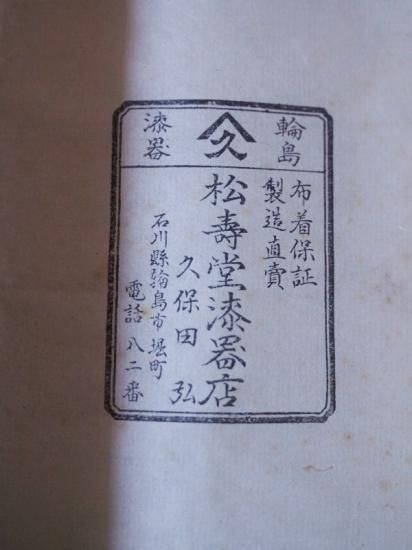 輪島
久
漆器
布着保証
製造直賣
松壽堂漆器店
久保田 弘
石川縣輪島市堀町
電話 八二番